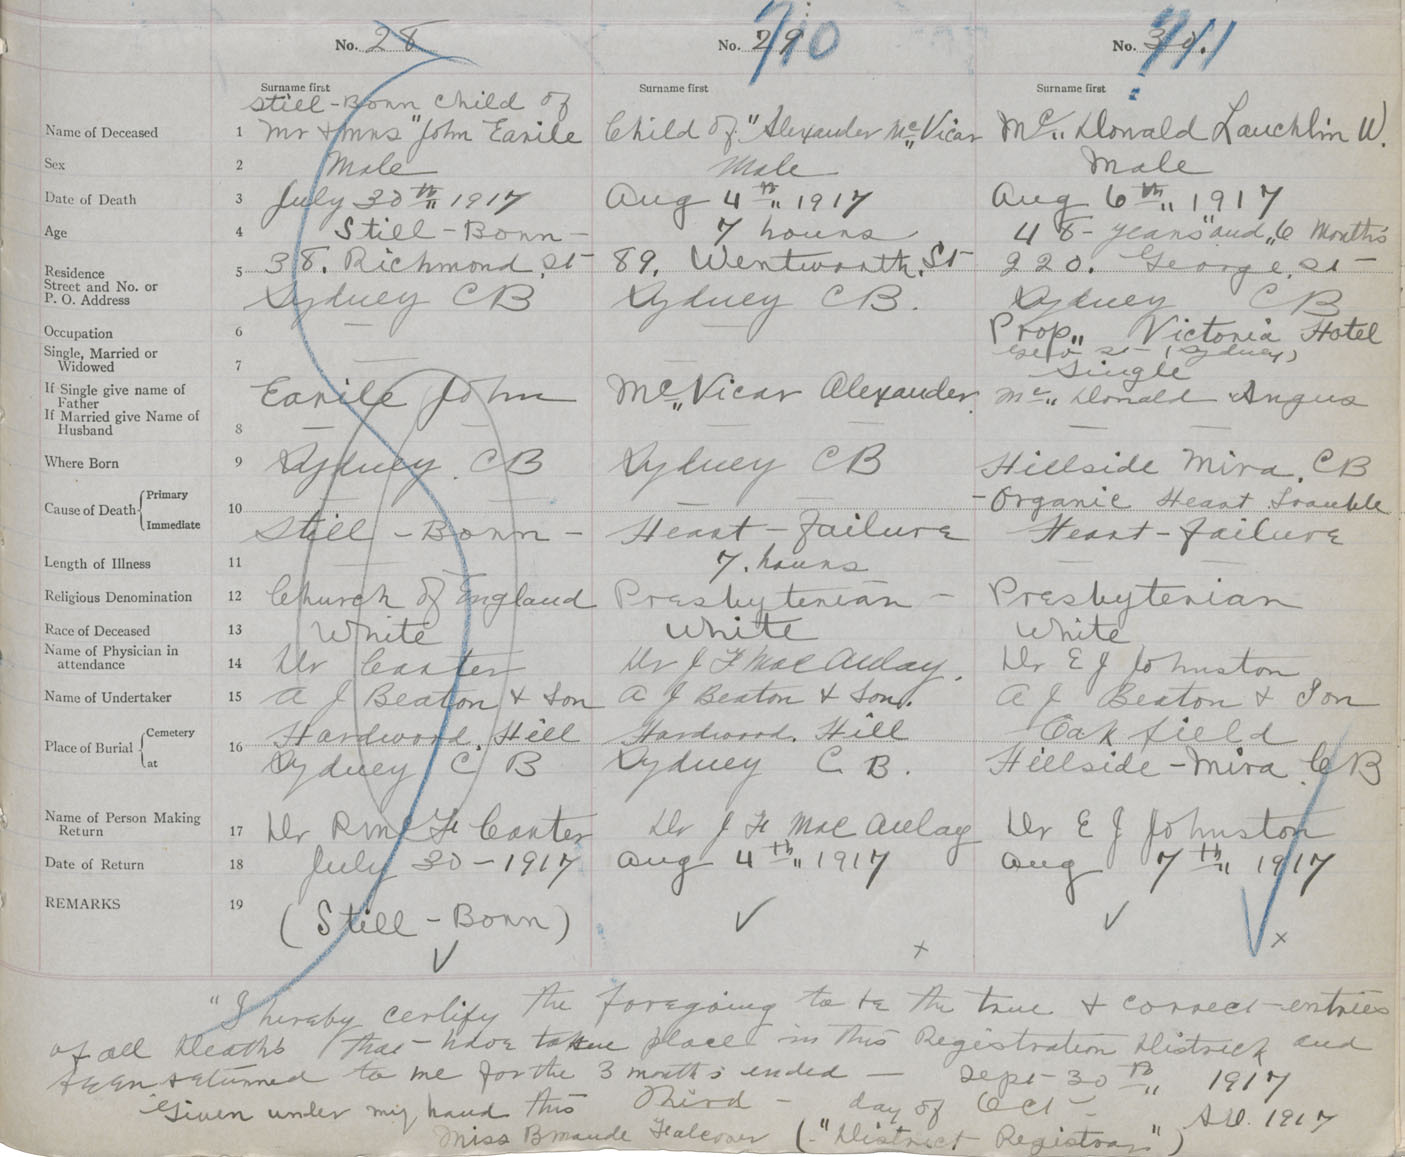 No. 28 No. 29 710 No. 30. 711
Surname first Surname first Surname first
Still-Born child of
Name of Deceased 1 Mr & Mrs "John Earile Child of "Alexander Mc"Vicar Mc" Donald Lauchlin W.
Sex 2 Male Male Male
Date of Death 3 July 30th" 1917 Aug 4th" 1917 Aug 6th" 1917
Age 4 Still-Born- 7 hours 48- years" and "6 Months
Residence
Street and No. or
P. O. Address
5 38. Richmond. St- 89. Wentworth. St- 220. George. St-
Sydney CB Sydney CB. Sydney CB
Occupation 6 — — Prop" Victoria Hotel
Geo St- (Sydney)
Single, Married or
Widowed
7 — — Single
If Single give name of
Father
Earile John Mc"Vicar Alexander. Mc" Donald Angus
If Married give Name of
Husband
8 — — — — — —
Where Born 9 Sydney. CB Sydney CB Hillside Mira. CB
Cause of Death { Primary 10 — — — — -Organic Heart Trouble
Immediate Still - Born - Heart-failure Heart-failure
Length of Illness 11 — — 7. hours — —
Religious Denomination 12 Church of England Presbyterian - Presbyterian
Race of Deceased 13 White White White
Name of Physician in
attendance
14 Dr Carter Dr J F MacAulay. Dr E J Johnston
Name of Undertaker 15 A J Beaton & Son A J Beaton & Son. A J Beaton & Son
Place of Burial { Cemetery 16 Hardwood. Hill Hardwood. Hill Oakfield
at Sydney CB Sydney CB. Hillside-Mira. CB
Name of Person Making
Return
17 Dr Rmc F Carter Dr J F MacAulay Dr E J Johnston
Date of Return 18 July 30-1917 Aug 4th" 1917 Aug 7th" 1917
REMARKS 19 (Still-Born)
"I hereby certify the foregoing to be the true & correct-entries
of all Deaths that-have taken place in this Registration District and
been returned to me for the 3 months ended — Sept-30th" 1917
"Given under my hand this Third - day of Oct- A.D. 1917
Miss B Maude Falconer ("District Registrar")